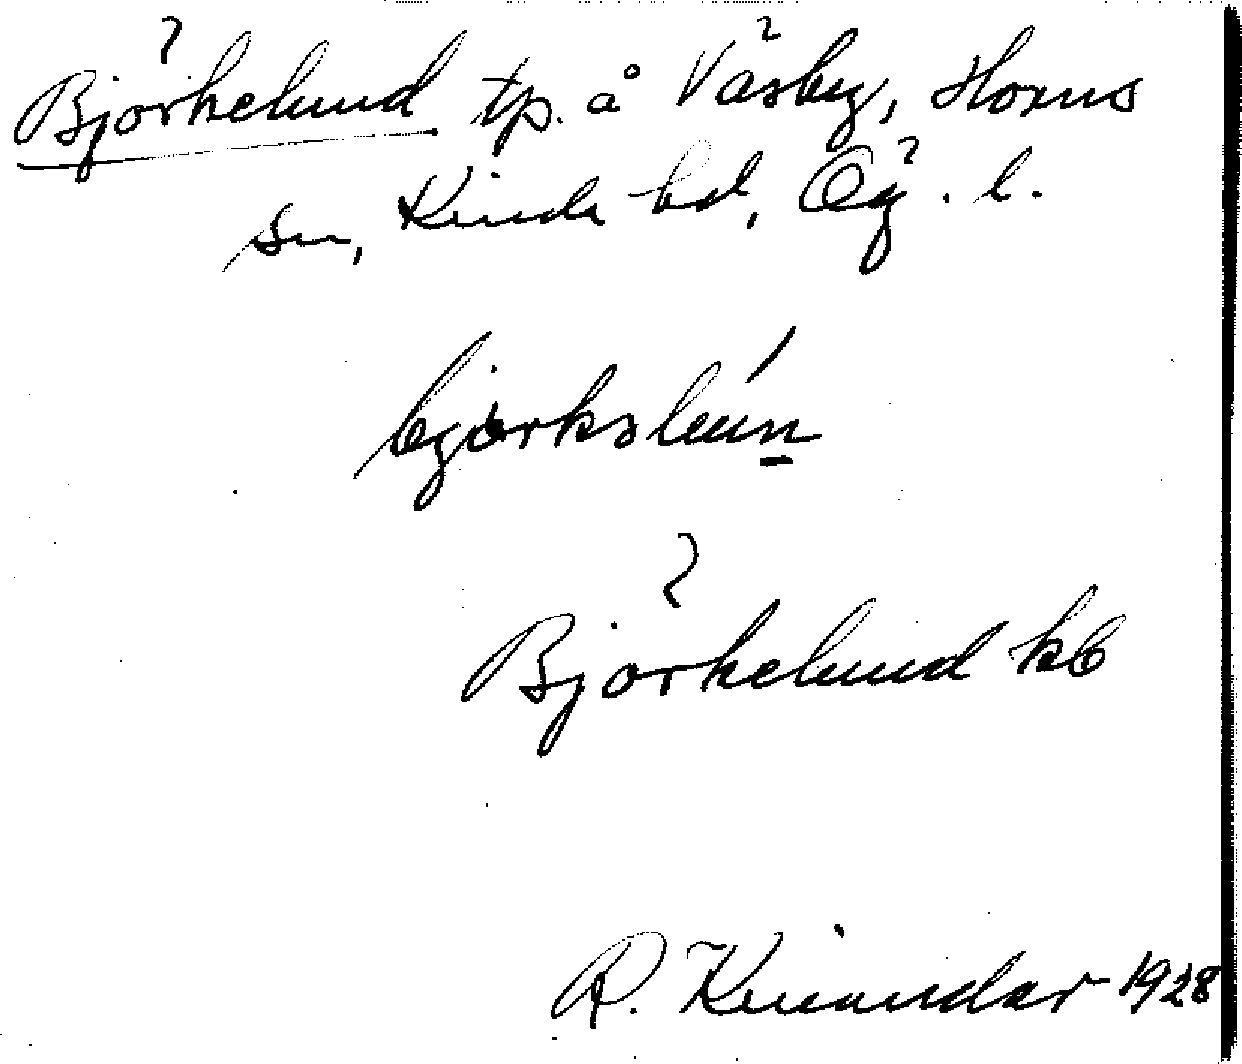 Björkelund tp. å Väsby, Horns
sn, Kinda hd, Ög. l.
bjørksluń
Björkelund kb
R. Kinander 1928